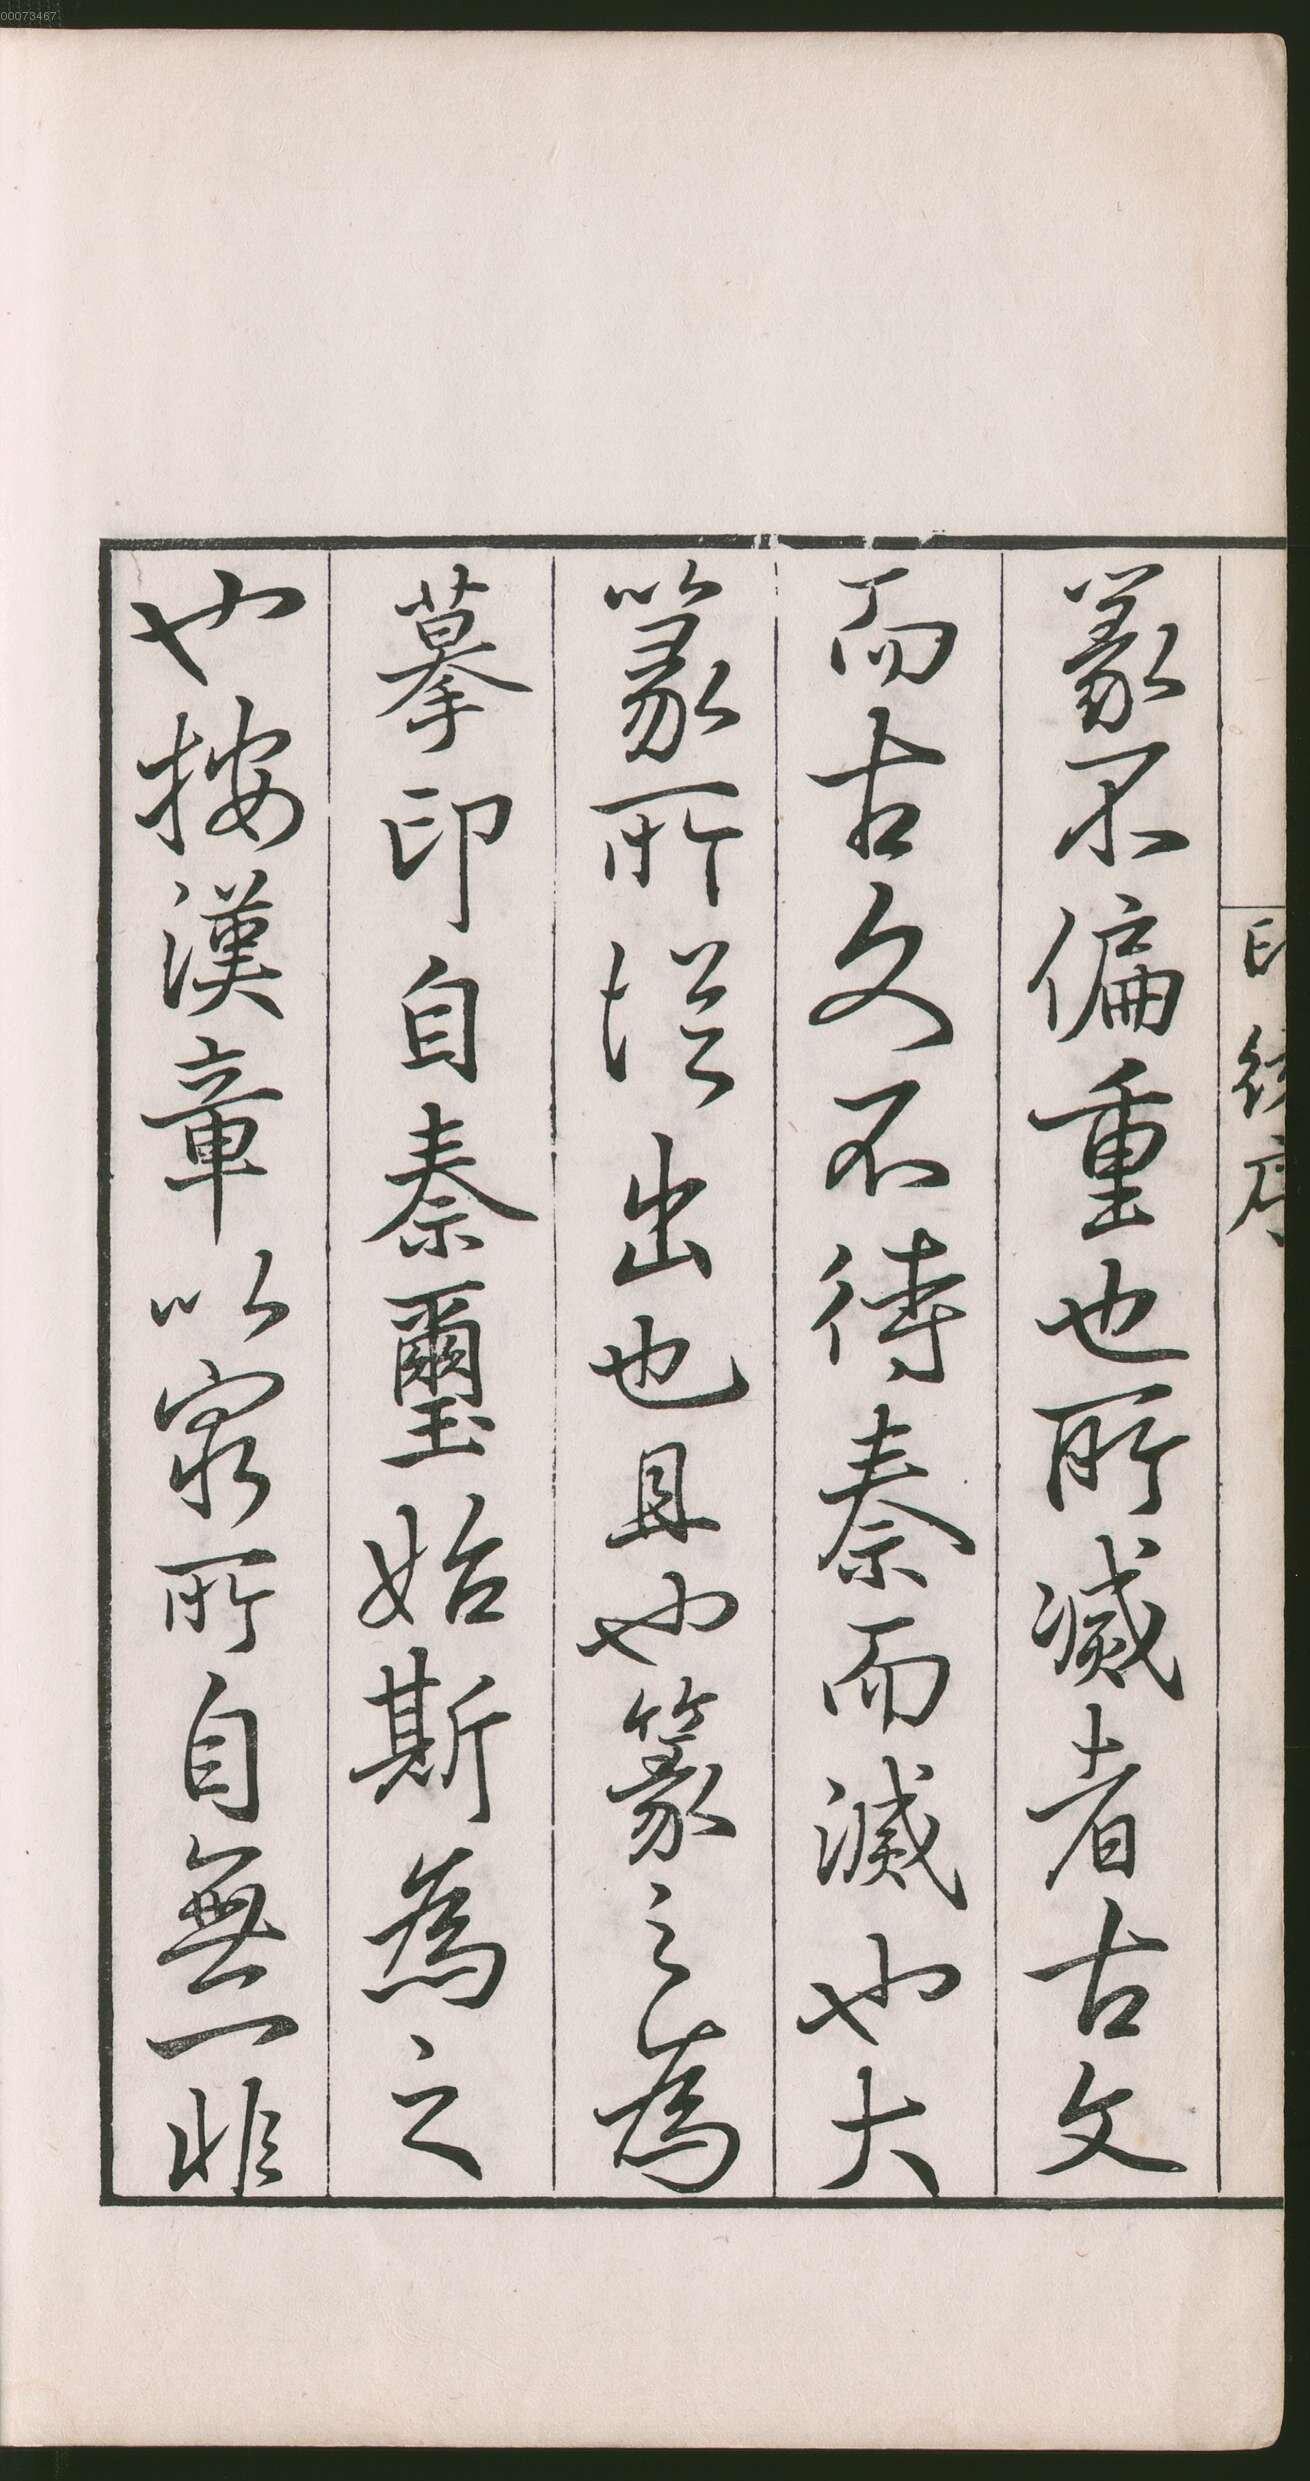 00073467
印統序
篆不偏重也所滅者古文
而古文不待秦而滅也大
篆所從出也且也篆之為
摹印自秦璽始斯為之
也按漢章以所自無一非